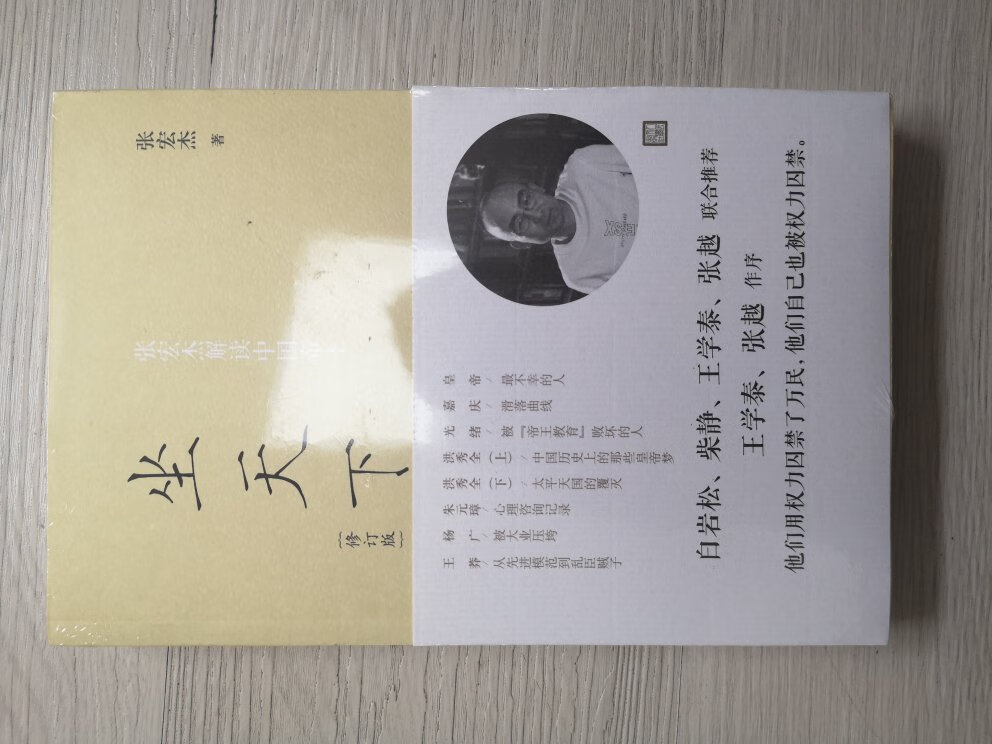 张宏杰 著
张宏杰解读中国
坐天下
(修订版)
皇帝/最不幸的人
嘉庆/滑落曲线
光绪/被『帝王教育』败坏的人
洪秀全(上)/中国历史上的那些皇帝梦
洪秀全(下)/太平天国的覆灭
朱元璋/心理咨询记录
杨广/被大业压垮
王莽/从先进模范到乱臣贼子
白岩松、柴静、王学泰、张越 联合推荐
王学泰、张越 作序
他们用权力囚禁了万民,他们自己也被权力囚禁。